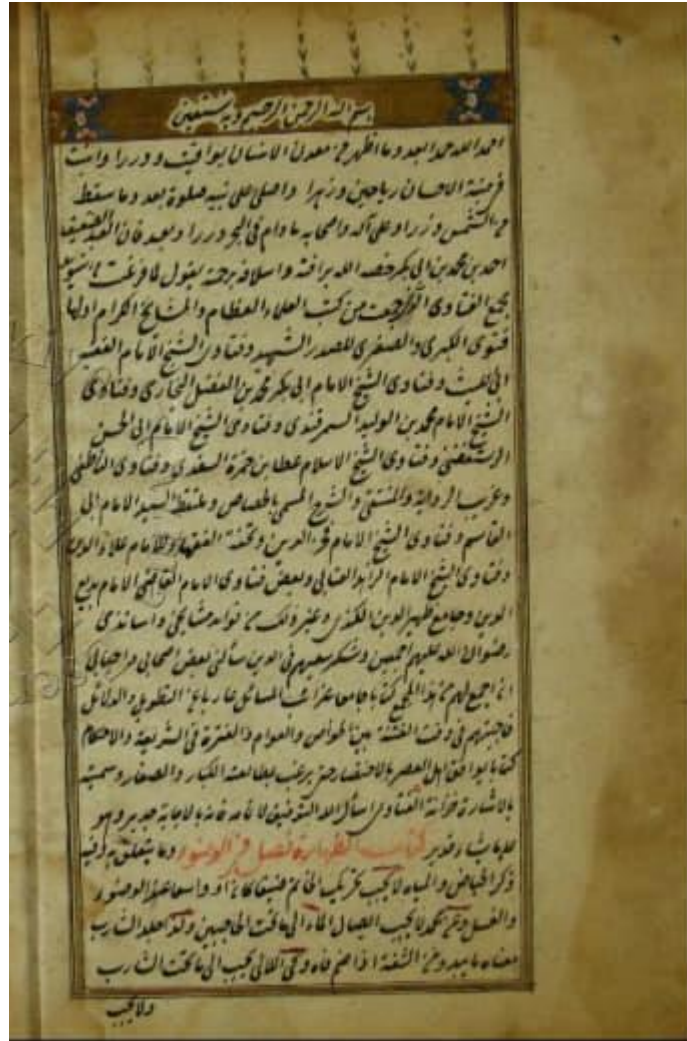 بسم الله الرحمن الرحيم وبه نستعين
احمد الله حمدا يعد وما اظهر من معدن الانسان يواقيت ودررا وانبت
فى منبة الاحسان رياحين وزهرا واصلى على نبيه صلوة بعد وما سقط
من الشمس وزرا وعلى آله واصحابه ما دام فى البحر دررا وبعد فان العبد الضعيف
احمد بن محمد بن ابى بكر خصه الله برأفته واسلافه برحمته يقول لما فرغت من
مجمع الفتاوى الذى جمعت من كتب العلماء العظام والمشايخ الكرام اولها
فتوى الكبرى والصغرى للصدر الشهيد وفتاوى الشيخ الامام الفقيه
ابى الليث وفتاوى الشيخ الامام ابى بكر محمد بن الفضل البخارى وفتاوى
الشيخ الامام محمد بن الوليد السمرقندى وفتاوى الشيخ الامام ابى الحسن
الرستغفنى وفتاوى الشيخ الاسلام عطا بن حمزة السغدى وفتاوى الناطفى
وغريب الرواية والمنتقى والشرح المسمى بالخصاص وملتقط السيد الامام ابى
القاسم وفتاوى الشيخ الامام فخر الدين وتحفة الفقهاء للامام علاء الدين
وفتاوى الشيخ الامام الزاهد العتابى وبعض فتاوى الامام القاضى الامام بديع
الدين وجامع ظهير الدين وغير ذلك من فوائد مشايخى واساتذى
رضوان الله عليهم اجمعين وشكر سعيهم فى الدين سألنى بعض اصحابى واحبابى
ان اجمع لهم من هذا المجمع كتابا جامعا غرائب المسائل عاريا عن التطويل والدلائل
فاجبتهم فى وقت الفتنة بين الخواص والعوام والفترة فى الشريعة والاحكام
كتابا يوافق اهل العصر بالاختصار حتى يرغب بمطالعته الكبار والصغار وسميته
بالاشارة خزانة الفتاوى اسأل الله التوفيق لاتمامه فانه بالاجابة جدير وهو
على ما يشاء قدير كتاب الطهارة فصل فى الوضوء وما يتعلق به وفيه
ذكر الحياض والمياه لا يجب تحريك الخاتم ضيقا كان او واسعا عند الوضوء
والغسل وعن محمد لا يجب ايصال الماء الى ما تحت الحاجبين وكذا الشارب
معناه ومن الشفة اذا ضم فاه وفى اللآلى يجب الى ما تحت الشارب
ولا يجب